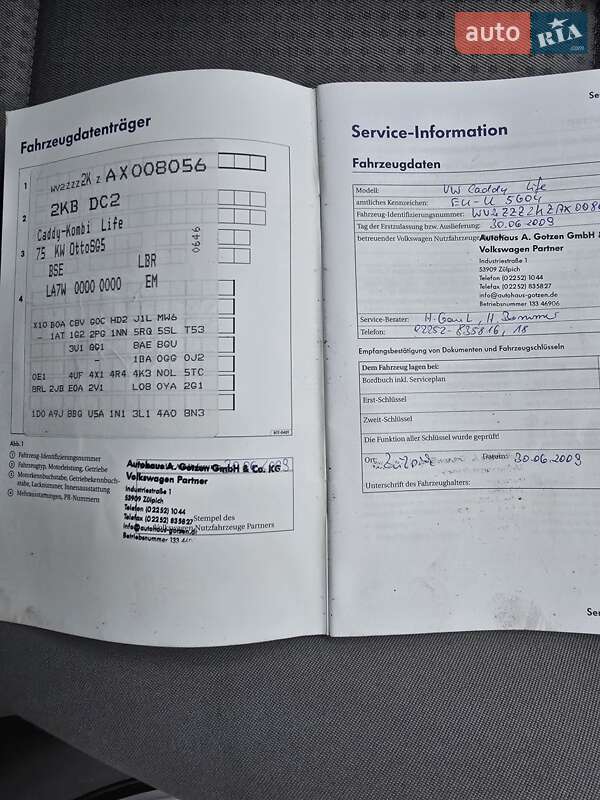 auto RIA .com
Fahrzeugdatenträger
1 WV2ZZZ2K Z AX008056
2 2KB DC2
Caddy-Kombi Life
3 75 KW OttoSG5 0646
BSE LBR
4 LA7W 0000 0000 EM
X10 B0A C8V Q0C HD2 J1L MW6
- 1AT 1G2 2PG 1NN 5RQ 5SL T53
3U1 QG1 8AE 8GU
- 1BA 0GG 0J2
0E1 4UF 4X1 4R4 4K3 N0L 5TC
8RL 2JB E0A 2V1 L08 0YA 2G1
1D0 A9J 8BG U5A 1N1 3L1 4A0 8N3
Abb.1
1 Fahrzeug-Identifizierungsnummer
2 Fahrzeugtyp, Motorleistung, Getriebe
3 Motorkennbuchstabe, Getriebekennbuchstabe, Lacknummer, Innenausstattung
4 Mehrausstattungen, PR-Nummern
Autohaus A. Gotzen GmbH & Co. KG
Volkswagen Partner
Industriestraße 1
53909 Zülpich
Telefon (0 22 52) 10 44
Telefax (0 22 52) 83 58 27
info@autohaus-gotzen.de
Betriebsnummer 133
Stempel des
Volkswagen Nutzfahrzeuge Partners
Se
Service-Information
Fahrzeugdaten
Modell: VW Caddy Life
amtliches Kennzeichen: EU-U 5604
Fahrzeug-Identifizierungsnummer: WV2ZZZ2KZAX008
Tag der Erstzulassung bzw. Auslieferung: 30.06.2009
betreuender Volkswagen Nutzfahrzeuge
Autohaus A. Gotzen GmbH &
Volkswagen Partner
Industriestraße 1
53909 Zülpich
Telefon (0 22 52) 10 44
Telefax (0 22 52) 83 58 27
info@autohaus-gotzen.de
Betriebsnummer 133 46906
Service-Berater:
Telefon: 02252-835816, 18
Empfangsbestätigung von Dokumenten und Fahrzeugschlüsseln
Dem Fahrzeug lagen bei:
Bordbuch inkl. Serviceplan
Erst-Schlüssel
Zweit-Schlüssel
Die Funktion aller Schlüssel wurde geprüft!
Ort: Datum: 30.06.2009
Unterschrift des Fahrzeughalters:
Se